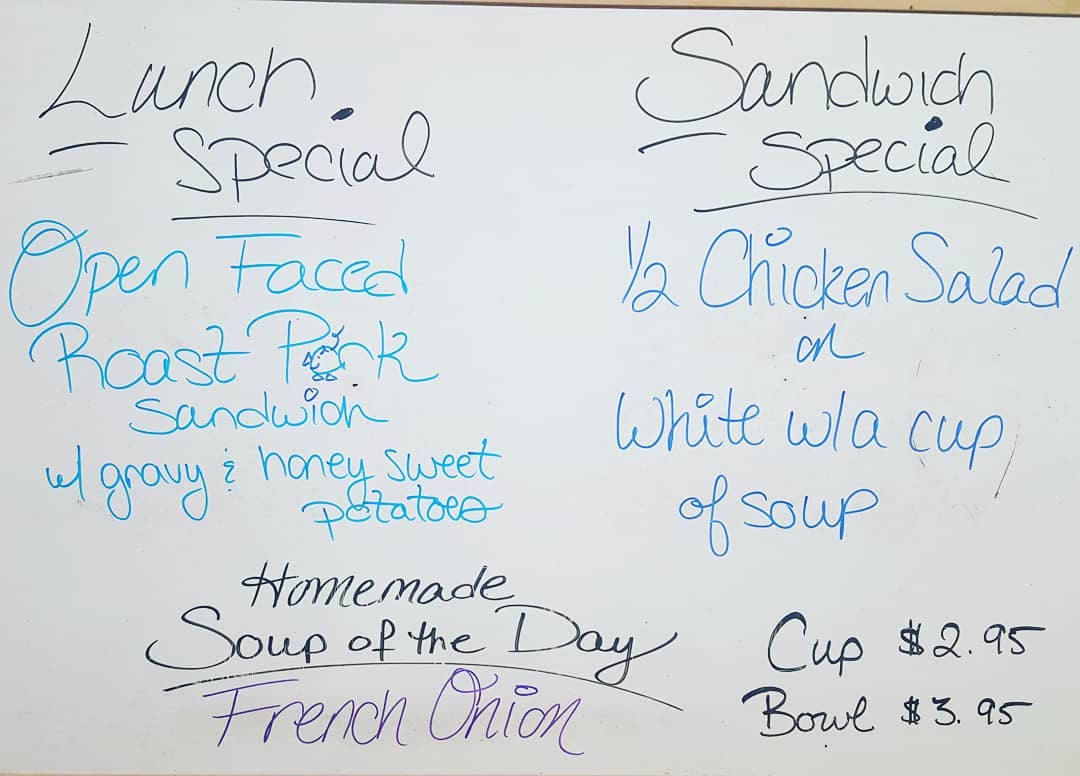 Lunch
Special
Open Faced
Roast Pork
Sandwich
w/ gravy & honey sweet
potatoes
Sandwich
Special
1/2 Chicken Salad
on
White w/a cup
of soup
Homemade
Soup of the Day
French Onion
Cup $2.95
Bowl $3.95